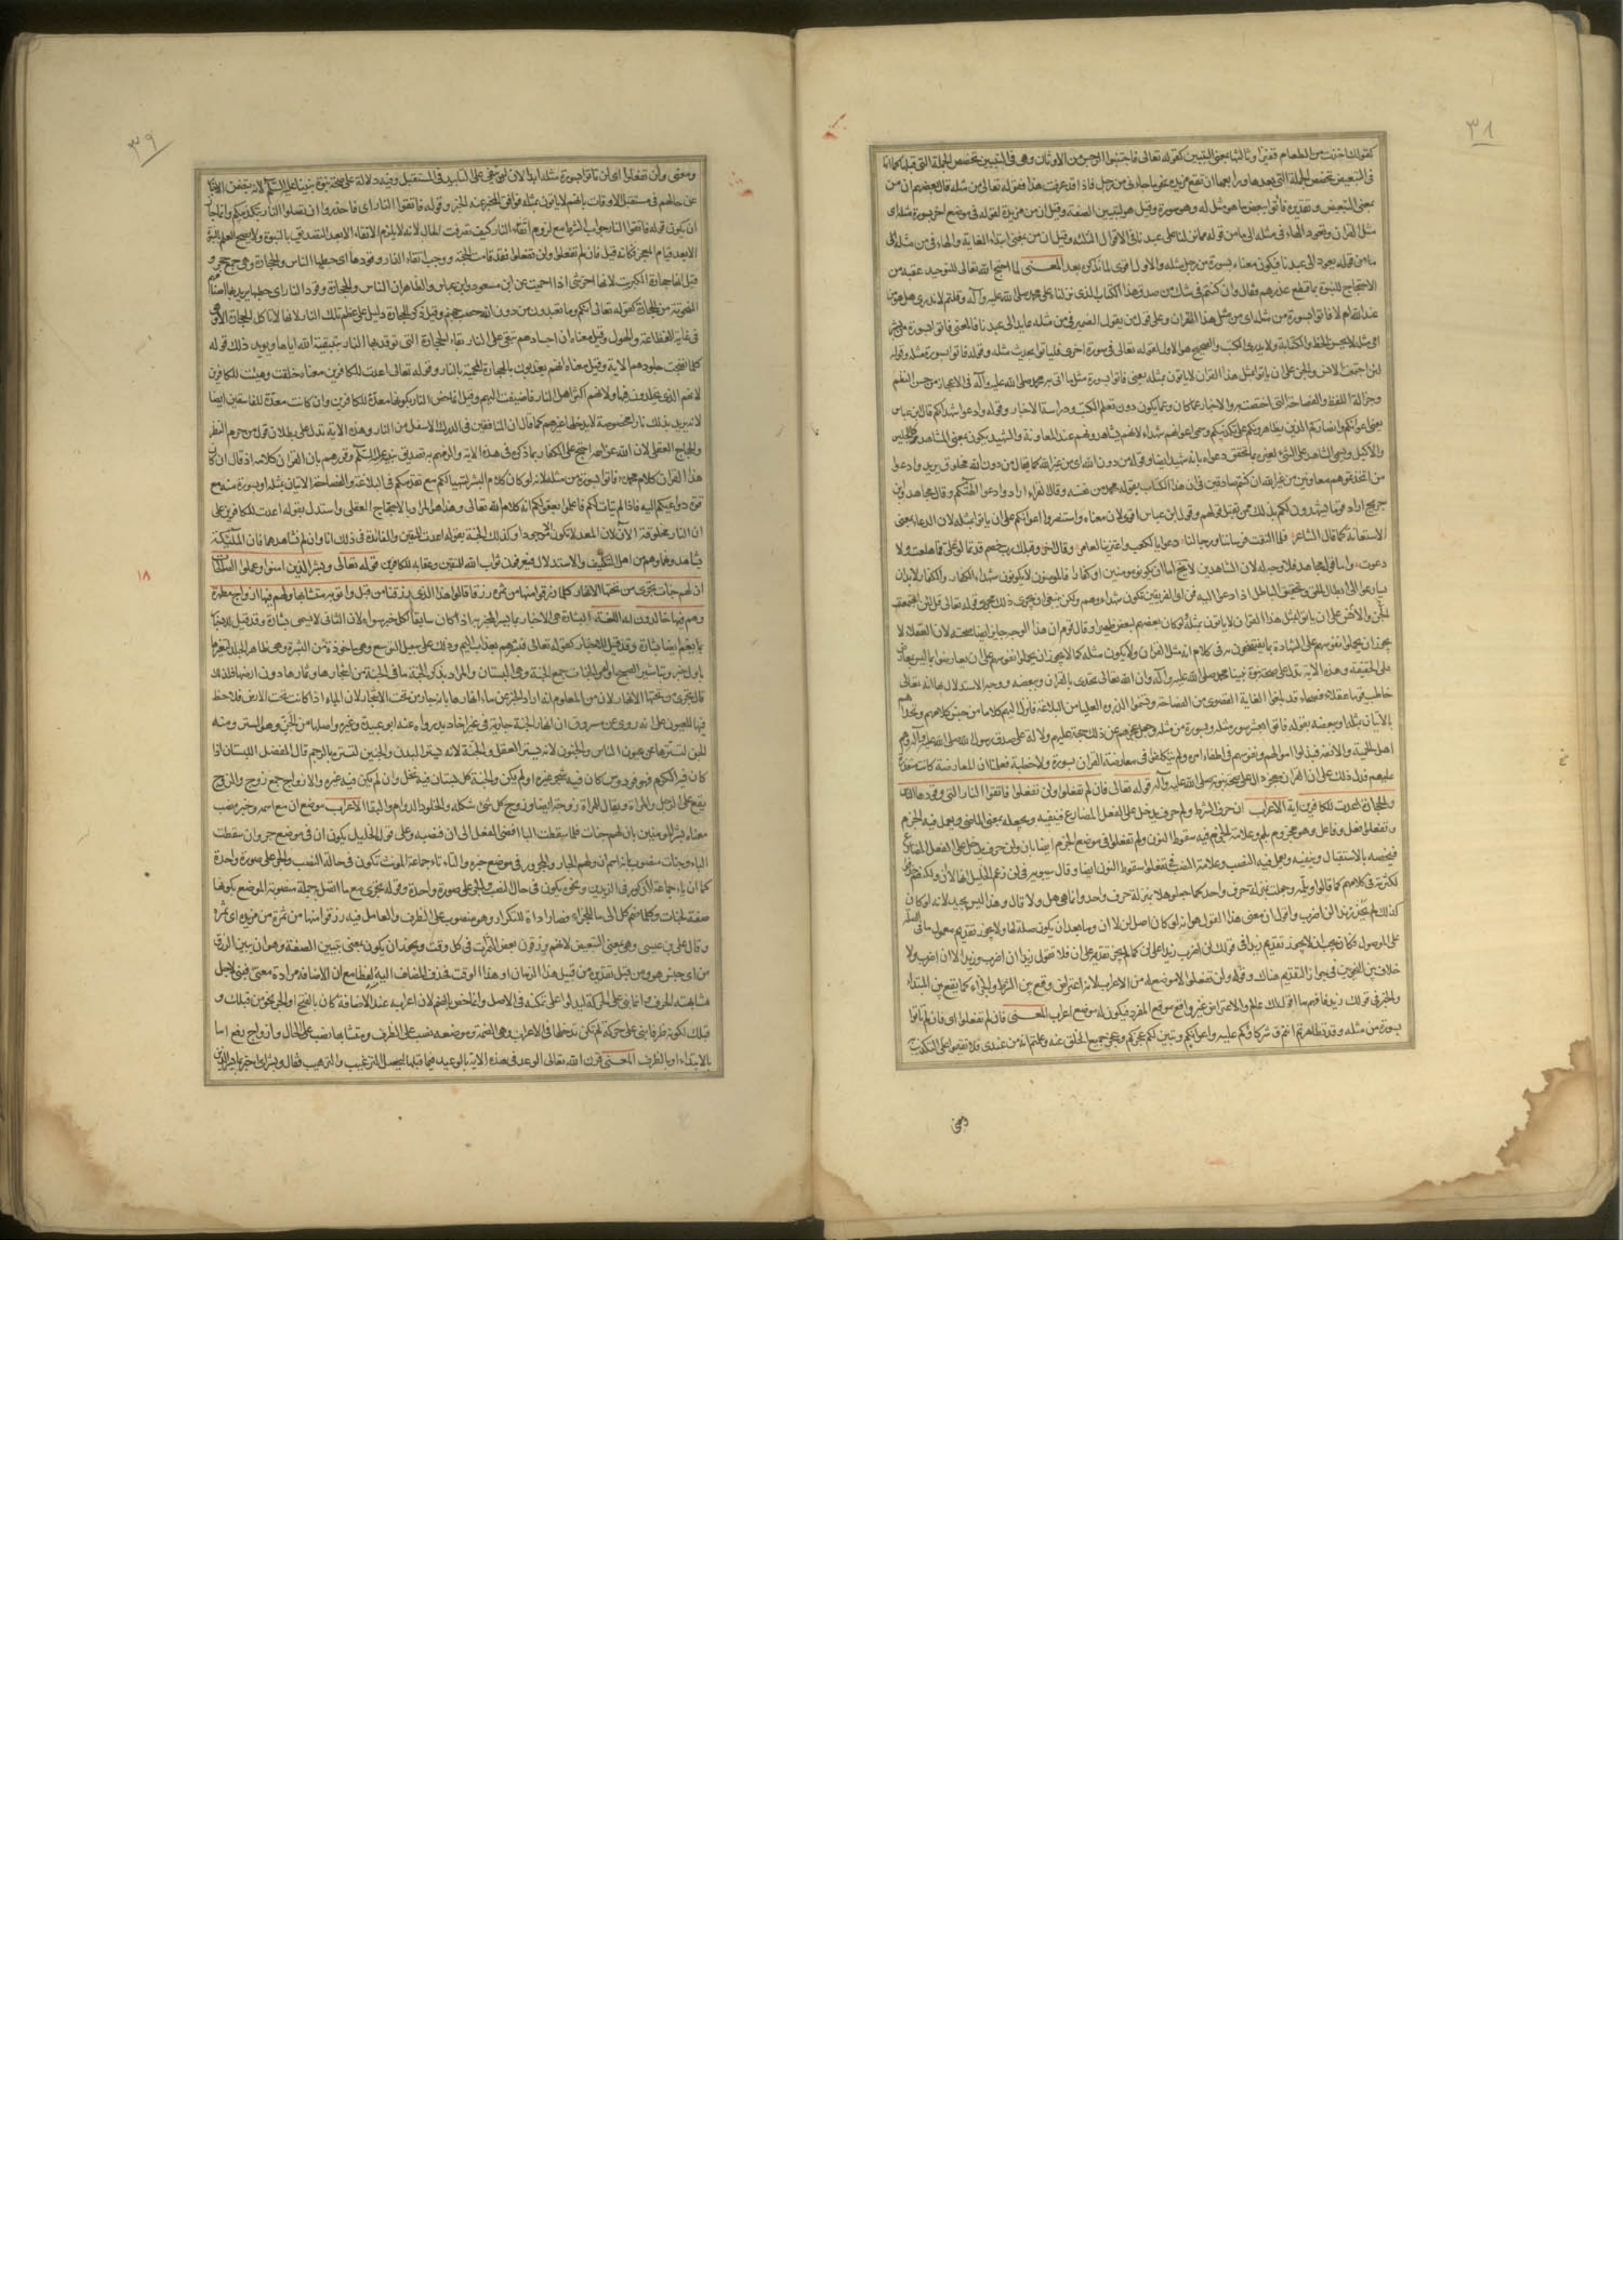 ٣٨
كقولك اخذت من الطعام قفيزا وثالثها بمعنى التبيين كقوله تعالى فاجتنبوا الرجس من الاوثان وهى فى التبيين تخصص الجملة التى قبلها كما انها
فى التبعيض تخصص الجملة التى بعدها ورابعها ان تقع مزيدة نحو ما جاءنى من رجل فاذا قد عرفت هذا فقوله تعالى من مثله قال بعضهم ان من
بمعنى التبعيض وتقديره فأتوا ببعض ما هو مثل له وهو سورة وقيل هو لتبيين الصفة وقيل ان من مزيدة لقوله فى موضع اخر بسورة مثله اى
مثل القران وتعود الهاء فى مثله الى ما من قوله مما نزلنا على عبدنا فى الاقوال الثلثة وقيل ان من بمعنى ابتداء الغاية والهاء فى من مثله
من قوله يعود الى عبدنا فيكون معناه بسورة من رجل مثله والاول اقوى لما نذكره بعد المعنى لما احتج الله تعالى للتوحيد عقبه من
الاحتجاج للنبوة بما قطع عذرهم فقال وان كنتم فى شك من صدق هذا الكتاب الذى نزلنا على محمد صلى الله عليه وآله وقلتم لا ندرى هل هو من
عند الله ام لا فاتوا بسورة من مثله اى من مثل هذا القران وعلى قول من يقول الضمير فى من مثله عايد الى عبدنا فالمعنى فاتوا بسورة من بشر
امى مثله لا يحسن الخط والكتابة ولا يدرى الكتب والصحيح هو الاول لقوله تعالى فى سورة اخرى فلياتوا بحديث مثله وقوله فاتوا بسورة مثله وقوله
لئن اجتمعت الانس والجن على ان ياتوا بمثل هذا القران لا ياتون بمثله يعنى فاتوا بسورة مثل ما اتى به محمد صلى الله عليه وآله فى الاعجاز من حسن النظم
وجزالة اللفظ والفصاحة التى اختصت به والاخبار عما كان وعما يكون دون تعلم الكتب ودراسة الاخبار وقوله وادعوا شهداءكم قال ابن عباس
يعنى اعوانكم وانصاركم الذين يظاهرونكم على تكذيبكم وسمى اعوانهم شهداء لانهم يشاهدونهم عند المعاونة والشهيد يكون بمعنى المشاهد كالجليس
والاكيل ويسمى الشاهد على الشىء لغيره بما يحقق دعواه بانه شهيد ايضا وقوله من دون الله اى من غير الله كما يقال من دون الله مخلوق يريد وادعوا
من اتخذتموهم معاونين من غير الله ان كنتم صادقين فى ان هذا الكتاب يقوله محمد من نفسه وقال الفراء اراد وادعوا الهتكم وقال مجاهد وابن
جريج اراد قوما يشهدون لكم بذلك ممن يقبل قولهم وقول ابن عباس اقوى لان معناه واستنصروا اعوانكم على ان ياتوا بمثله لان الدعاء بمعنى
الاستعانة كما قال الشاعر فلما التقت فرساننا ورجالنا دعوا يا لكعب واعتزينا لعامر وقال اخر وقبلك رب خصم قد تمالوا على فما هلعت ولا
دعوت واما قول مجاهد فلا وجه له لان الشاهدين لا يخلو اما ان يكونوا مومنين او كفارا فالمومنون لا يكونون شهداء الكفار والكفار لا بد ان
يسارعوا الى ابطال الحق وتحقيق الباطل اذا دعوا اليه فمن اى الفريقين تكون شهداءهم ولكن ينبغى ان يجرى ذلك مجرى قوله تعالى قل لئن اجتمعت
الجن والانس على ان ياتوا بمثل هذا القران لا ياتون بمثله ولو كان بعضهم لبعض ظهيرا وقال قوم ان هذا الوجه جايز ايضا صحته لان العقلاء لا
يجوز ان يحملوا نفوسهم على الشهادة بما يفتضحون به فى كلام انه مثل القران ولا يكون مثله كما لا يجوز ان يحملوا نفوسهم على ان يعارضوا بما ليس بمعارض
على الحقيقة وهذه الاية تدل على صحة نبوة نبينا محمد صلى الله عليه وآله وان الله تعالى تحدى بالقران وببعضه ووجه الاستدلال بها انه تعالى
خاطب قوما عقلاء فصحاء قد بلغوا الغاية القصوى من الفصاحة وتسنموا الذروة العليا من البلاغة فانزل اليهم كلاما من جنس كلامهم وتحداهم
بالاتيان بمثله او ببعضه بقوله فاتوا بعشر سور مثله وبسورة من مثله وجعل عجزهم عن ذلك حجة عليهم ودلالة على صدق رسول الله صلى الله عليه وآله وهم
اهل الحمية والانفة فبذلوا اموالهم ونفوسهم فى اطفاء امره ولم يتكلفوا فى معارضة القران بسورة ولا خطبة فعلمنا ان المعارضة كانت متعذرة
عليهم فدل ذلك على ان القران معجز دال على صحة نبوته صلى الله عليه وآله قوله تعالى فان لم تفعلوا ولن تفعلوا فاتقوا النار التى وقودها الناس
والحجارة اعدت للكافرين اية الاعراب ان حرف الشرط ولم حرف يدخل على الفعل المضارع فينفيه ويجعله بمعنى الماضى ويعمل فيه الجزم
وتفعلوا فعل وفاعل وهو مجزوم بلم وعلامة الجزم فيه سقوط النون ولم تفعلوا فى موضع الجزم ايضا بان ولن حرف يدخل على الفعل المضارع
فيخصه بالاستقبال وينفيه ويعمل فيه النصب وعلامة النصب فى تفعلوا سقوط النون ايضا وقال سيبويه فى لن زعم الخليل انها لا ان ولكنهم حذفوا
لكثرته فى كلامهم كما قالوا ويلمه وجعلت بمنزلة حرف واحد كما جعلوا هلا بمنزلة حرف واحد وانما هى هل ولا قال وهذا ليس بجيد لانه لو كان
كذلك لم يجز زيدا لن اضرب واقول ان معنى هذا القول هو انه لو كان اصل لن لا ان وما بعد ان يكون صلة لها ولا يجوز تقديم معمول ما فى الصلة
على الموصول فكان يجب ان لا يجوز تقديم زيدا فى قولك لن اضرب زيدا على لن كما لم يجز تقديمه على ان فلا تقول زيدا ان اضرب وزيدا لا ان اضرب ولا
خلاف بين النحويين فى جواز التقديم هناك وقوله ولن تفعلوا لا موضع له من الاعراب لانه اعتراض وقع بين الشرط والجزاء كما يقع بين المبتداء
والخبر فى قولك زيد فافهم ما اقول لك عالم والاعتراض غير واقع موقع المفرد فيكون له موضع اعراب المعنى فان لم تفعلوا اى فان لم تاتوا
بسورة من مثله وقد تظاهرتم انتم وشركاؤكم عليه واعوانكم وتبين لكم عجزكم وعجز جميع الخلق عنه وعلمتم انه من عندى فلا تقيموا على التكذيب
ومعنى
٣٩
ومعنى ولن تفعلوا اى لن تاتوا بسورة مثله ابدا لان لن تنفى على التابيد فى المستقبل وفيه دلالة على صحة نبوة نبينا عليه السلام لانه يتضمن الاخبار
عن حالهم فى مستقبل الاوقات بانهم لا ياتون بمثله فوافق المخبر عنه الخبر وقوله فاتقوا النار اى فاحذروا ان تصلوا النار بتكذيبكم وانما جاز
ان يكون قوله فاتقوا النار جواب الشرط مع لزوم اتقاء النار كيف تصرفت الحال لانه لا يلزم الاتقاء الا بعد التصديق بالنبوة ولا يصح العلم بالنبوة
الا بعد قيام المعجز فكانه قيل فان لم تفعلوا ولن تفعلوا فقد قامت الحجة ووجب اتقاء النار وقودها اى حطبها الناس والحجارة وهى جمع حجر و
قيل انها حجارة الكبريت لانها احر شىء اذا احميت عن ابن مسعود وابن عباس والظاهر ان الناس والحجارة وقود النار اى حطبها يريد بها اصنامهم
المنحوتة من الحجارة كقوله تعالى انكم وما تعبدون من دون الله حصب جهنم وقيل ذكر الحجارة دليل على عظم تلك النار لانها لا تاكل الحجارة الا وهى
فى غاية الفظاعة والهول وقيل معناه ان اجسادهم تبقى على النار بقاء الحجارة التى توقد بها النار بتبقية الله اياها ويويد ذلك قوله
كلما نضجت جلودهم الاية وقيل معناه انهم يعذبون بالحجارة المحمية بالنار وقوله تعالى اعدت للكافرين معناه خلقت وهيئت للكافرين
لانهم الذين يخلدون فيها ولانهم اكثر اهل النار فاضيفت اليهم وقيل انما خص النار بكونها معدة للكافرين وان كانت معدة للفاسقين ايضا
لانه يريد بذلك نارا مخصوصة لا يدخلها غيرهم كما قال ان المنافقين فى الدرك الاسفل من النار وهذه الاية تدل على بطلان قول من حرم النظر
والحجاج العقلى لان الله عز اسمه احتج على الكفار بما ذكره فى هذه الاية والزمهم به تصديق نبيه عليه السلام وقررهم بان القران كلامه اذ قال ان كان
هذا القران كلام محمد فاتوا بسورة من مثله لانه لو كان كلام البشر لتهيا لكم مع تقدمكم فى البلاغة والفصاحة الاتيان بمثله او بسورة منه مع
قوة دواعيكم اليه فاذا لم يتات لكم فاعلموا بعقولكم انه كلام الله تعالى وهذا هو المراد بالاحتجاج العقلى واستدل بقوله اعدت للكافرين على
ان النار مخلوقة الآن لان المعد لا يكون الا موجودا وكذلك الجنة بقوله اعدت للمتقين والفائدة فى ذلك انا وان لم نشاهدهما فان الملئكة
يشاهدونهما وهم من اهل التكليف والاستدلال فيعرفون ثواب الله للمتقين وعقابه للكافرين قوله تعالى وبشر الذين امنوا وعملوا الصالحات
١٨
ان لهم جنات تجرى من تحتها الانهار كلما رزقوا منها من ثمرة رزقا قالوا هذا الذى رزقنا من قبل واتوا به متشابها ولهم فيها ازواج مطهرة
وهم فيها خالدون اية اللغة البشارة هى الاخبار بما يسر المخبر به اذا كان سابقا لكل خبر سواه لان الثانى لا يسمى بشارة وقد قيل للاخبار
بما يغم ايضا بشارة كقوله تعالى فبشرهم بعذاب اليم وذلك على سبيل التوسع وهى ماخوذة من البشرة وهى ظاهر الجلد لتغيرها
باول خبر وتباشير الصبح اوله والجنات جمع الجنة وهى البستان والمراد بذكر الجنة ما فى الجنة من اشجارها وثمارها دون ارضها فلذلك
قال تجرى من تحتها الانهار لان من المعلوم انه اراد الخبر عن ماء انهارها بانه جار من تحت الاشجار لان الماء اذا كانت تحت الارض فلا حظ
فيها للعيون على انه روى عن مسروق ان انهار الجنة جارية فى غير اخاديد رواه عنه ابو عبيدة وغيره واصلها من الجن وهو الستر ومنه
الجن لتسترها عن عيون الناس والجنون لانه يستر العقل والجنة لانه يستر البدن والجنين لتستره بالرحم قال المفضل البستان اذا
كان فيه الكرم فهو فردوس كان فيه شجر غيره او لم يكن والجنة كل بستان فيه نخل وان لم يكن فيه غيره والازواج جمع زوج والزوج
يقع على الرجل والمراة ويقال للمراة زوجة ايضا وزوج كل شىء شكله والخلود الدوام والبقاء الاعراب موضع ان مع اسمه وخبره نصب
معناه بشر المومنين بان لهم جنات فلما سقطت الباء افضى الفعل الى ان فنصبه وعلى قول الخليل يكون ان فى موضع جر وان سقطت
الباء وجنات منصوب بانه اسم ان ولهم الجار والمجرور فى موضع خبره والتاء تاء جماعة المونث تكون فى حالة النصب والجر على صورة واحدة
كما ان ياء جماعة الذكور فى الزيدين ونحوه يكون فى حال النصب والجر على صورة واحدة وقوله تجرى مع ما اتصل به جملة منصوبة الموضع بكونها
صفة لجنات وكلما ضم كل الى ما الجزاء فصارا اداة للتكرار وهو منصوب على الظرف والعامل فيه رزقوا منها من ثمرة من مزيدة اى ثمرة
وقال على بن عيسى وهى بمعنى التبعيض لانهم يرزقون بعض الثمرات فى كل وقت ويجوز ان يكون بمعنى تبيين الصفة وهو ان يبين الرزق
من اى جنس هو ومن قبل تقديره من قبل هذا الزمان او هذا الوقت فحذف المضاف اليه لفظا مع ان الاضافة مرادة معنى فبنى لاجل
مشابهته الحرف وانما بنى على الحركة ليدلوا على تمكنه فى الاصل وانما خص بالضم لان اعرابه عند الاضافة كان بالفتح او الجر نحو من قبلك و
قبلك لكونه ظرفا بنى على حركة لم تكن تدخلها فى الاعراب وهى الضمة وموضعه نصب على الظرف ومتشابها نصب على الحال وازواج رفع اما
بالابتداء او بالظرف المعنى قرن الله تعالى الوعد فى هذه الاية بالوعيد فيما قبلها ليحصل الترغيب والترهيب فقال وبشر اى اخبر بما يسر الذين